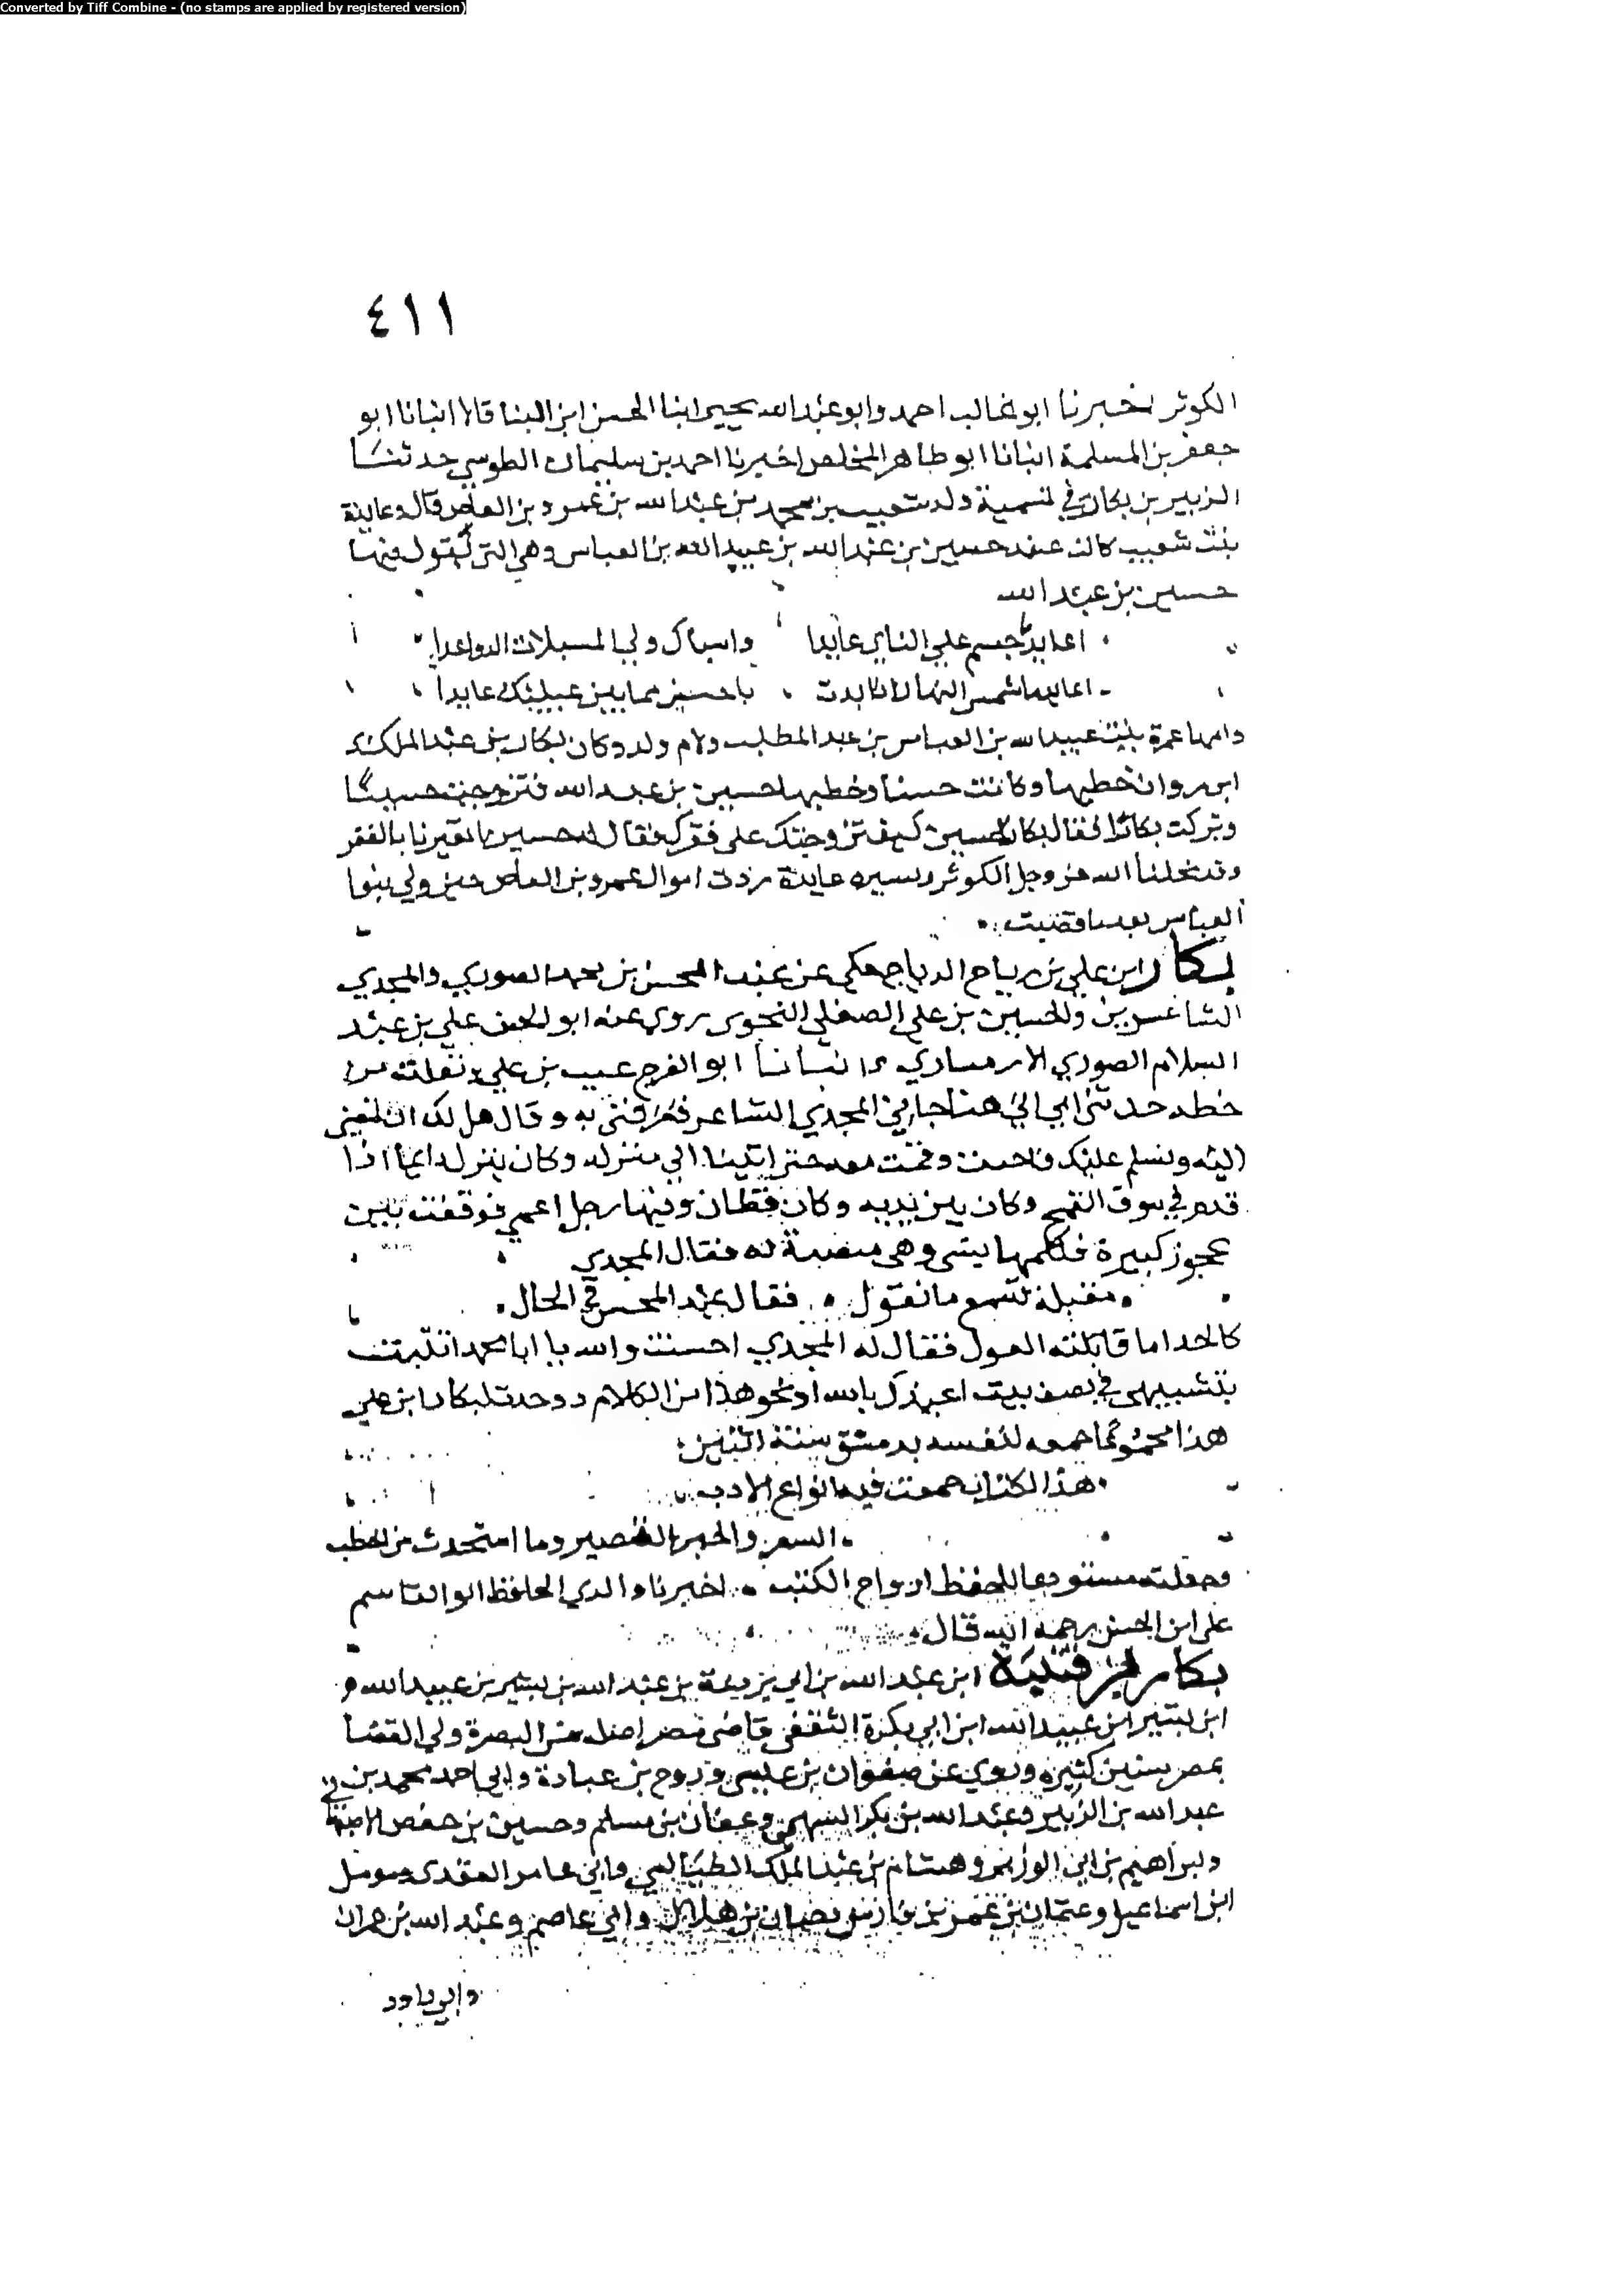 Converted by Tiff Combine - (no stamps are applied by registered version)
٤١١
الكوثر اخبرنا ابو غالب احمد وابو عبد الله يحيى ابنا الحسن ابن البنا قالا انبانا ابو
جعفر بن المسلمة انبانا ابو طاهر المخلص اخبرنا احمد بن سليمان الطوسي حدثنا
الزبير بن بكار في تسمية ولد شعيب بن محمد بن عبد الله بن عمرو بن العاص قال وعابدة
بنت شعيب كانت عند حسين بن عبد الله بن عبيد الله بن العباس وهي التي يقول فيها
حسين بن عبد الله
اعابد جسم على الناي عابدا واسقاك ربي المسبلات الرواعدا
اعابد ما شمس النهار اذا بدت باحسن مما بين عينيك عابدا
وامها عمرة بنت عبيد الله بن العباس بن عبد المطلب ولام ولد وكان بكار بن عبد الملك
ابن مروان خطبها وكانت حسنا وخطبها حسين بن عبد الله فتزوجت حسينا
وتركت بكارا فقال بكار لحسين كيف تزوجتك على فقرك فقال له حسين اتعيرنا بالفقر
وقد نحلنا الله عز وجل الكوثر وبسبب عابدة ردت اموال عمرو بن العاص حين ولي بنوا
العباس بعد ما قبضت
بكار ابن علي بن رياح الدياجي حكى عن عبد المحسن بن محمد الصوري والمجدي
الشاعرين والحسين بن علي الصقلي النحوي روى عنه ابو الحسن علي بن عبد
السلام الصوري الارمنازي انبانا ابو الفرج غيث بن علي ونقلته من
خطه حدثني ابي الي هنا جا ابي المجدي الشاعر فعرفني به وقال هل لك ان نمضي
اليه ونسلم عليك فاجبت وقمت معه حتى اتينا الي منزله وكان ينزل دايما اذا
قدم في سوق القمح وكان بين يديه دكان قطان وفيها رجل اعمى فوقفت بين
عجوز كبيرة فكلمها بشي وهي منصتة له فقال المجدي
منصتة تسمع ما نقول فقال عبد المحسن في الحال
كالخد لما قابلته الغول فقال له المجدي احسنت والله يا ابا محمد اتيت
بتشبيهين في نصف بيت اعيذك بالله او نحو هذا من الكلام ووجدت لبكار ابن علي
هذا مجموعا جمعه لنفسه بدمشق سنة اثنين
هذا الكتاب جمعت فيه انواع الادب
الشعر والخبر القصير وما استحدث من الخطب
وجعلته مستودعا للحفظ ارواح الكتب اخبرنا والدي الحافظ ابو القاسم
علي ابن الحسن رحمه الله قال
بكار بن قتيبة ابن عبد الله بن ابي بردعة بن عبد الله بن بشير بن عبيد الله
ابن بشير ابن عبيد الله ابن ابي بكرة الثقفي قاضي مصر اصله من البصرة ولي القضا
بمصر سنين كثيرة وروي عن صفوان بن عيسى وروح بن عبادة وابي احمد محمد بن
عبد الله بن الزبير وعبد الله بن بكر السهمي وعفان بن مسلم وحسين بن حفص الاصبهاني
وابراهيم بن ابي الوزير وهشام بن عبد الملك الطيالسي وابي عامر العقدي ومومل
ابن اسماعيل وعثمان بن عمر بن فارس وحبان بن هلال وابي عاصم وعبد الله بن حمران
وابي داود